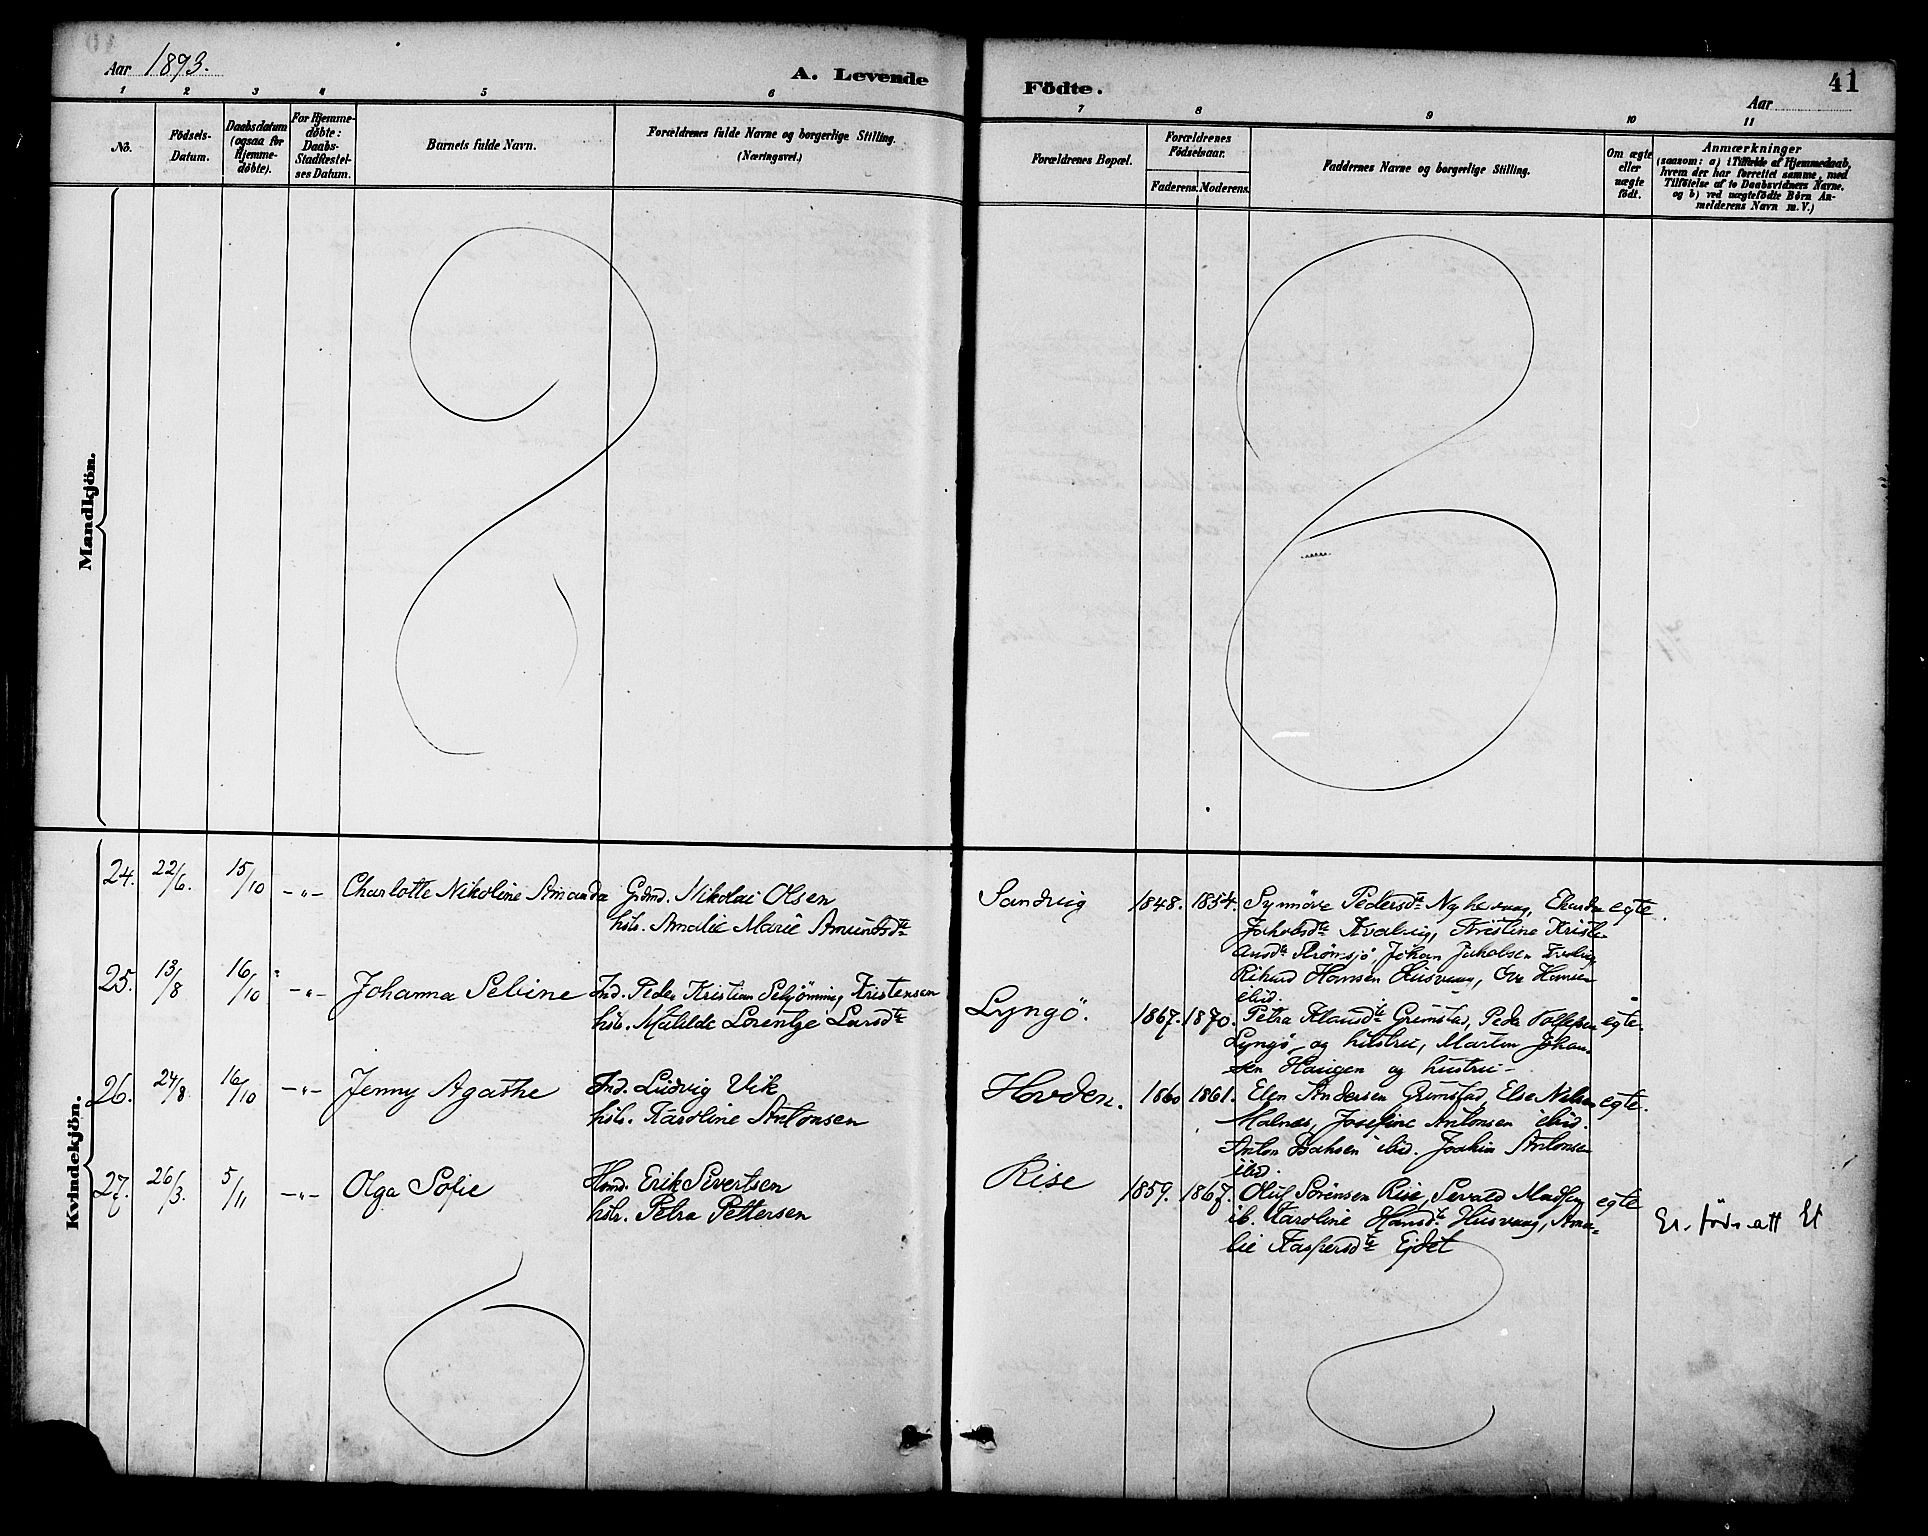 Aar 1893.
A. Levende
Födte.
41
Aar
1 2 3 4 5 6 7 8 9 10 11
No.
Födsels-
Datum.
Daabsdatum
(ogsaa for
Hjemme-
døbte).
For Hjemme-
døbte:
Daabs-
Stadfæstel-
ses Datum.
Barnets fulde Navn.
Forældrenes fulde Navne og borgerlige Stilling.
(Næringsvei.)
Forældrenes Bopæl.
Forældrenes
Fødselsaar.
Faderens. Moderens.
Faddernes Navne og borgerlige Stilling.
Om ægte
eller
uægte
født.
Anmærkninger
(saasom: a) i Tilfælde af Hjemmedaab,
hvem der har forrettet samme, med
Tilføielse af to Daabsvidners Navne,
og b) ved uægtefödte Börn An-
melderens Navn m.V.)
Mandkjön.
Kvindekjön.
24. 22/6. 15/10 -„- Charlotte Nikoline Amanda Grdmd. Nikolai Olsen
hstr. Amalie Marie Amundsdtr
Sandvig 1848. 1854. Synnöve Pedersdtr Nyhevaag, egte.
Jakobsdtr Kvalvig, Kristine Kristi-
ansdtr Strömsjö, Johan Jakobsen
Rikard Hansen Husvaag, Ove Hansen
ibid.
25. 13/8 16/10 -„- Johanna Seline Ind. Peder Kristian Kristensen
hstr. Matilde Lorentze Larsdtr
Lyngö. 1867. 1870. Petra Klausdtr Grimstad, Peder egte.
Lyngö og hustru, Martin Johan-
sen Haugen og hustru -
26. 24/8 16/10 -„- Jenny Agathe Ind. Ludvig Vik
hstr. Karoline Antonsen
Hovden. 1860 1861. Elen Andersen Grimstad, Else Nilsen egte.
Malnes, Josefine Antonsen ibid.
Anton ibid. Joakim Antonsen
ibid.
27. 26/3. 5/11 -„- Olga Sofie Hmd. Erik Sivertsen
hstr. Petra Pettersen
Rise 1859. 1867. Oluf Sörensen Rise, Sevald Madsen egte
ib. Karoline Hansdtr Husvaag, Ama-
lie Kaspersdtr Ejdet